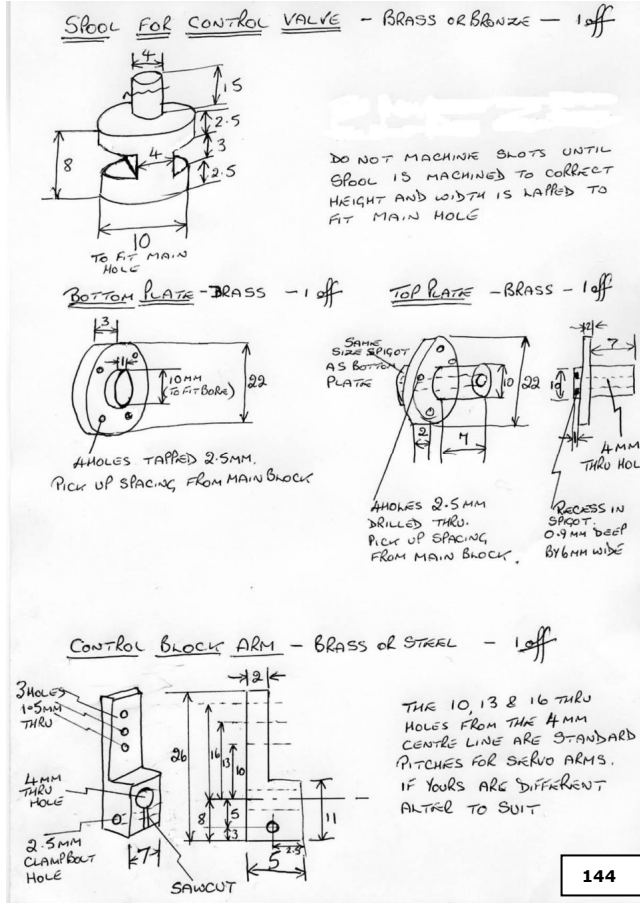 SPOOL FOR CONTROL VALVE - BRASS OR BRONZE - 1 off
4
15
2.5
3
8
4
2.5
10
TO FIT MAIN
HOLE
DO NOT MACHINE SLOTS UNTIL
SPOOL IS MACHINED TO CORRECT
HEIGHT AND WIDTH IS LAPPED TO
FIT MAIN HOLE
BOTTOM PLATE - BRASS - 1 off
3
1
10MM
(TO FIT BORE)
22
4 HOLES TAPPED 2.5MM.
PICK UP SPACING FROM MAIN BLOCK
TOP PLATE - BRASS - 1 off
SAME
SIZE SPIGOT
AS BOTTOM
PLATE
10
22
2
7
4 HOLES 2.5MM
DRILLED THRU.
PICK UP SPACING
FROM MAIN BLOCK.
2
7
10
1
4MM
THRU HOL
RECESS IN
SPIGOT.
0.9MM DEEP
BY 6MM WIDE
CONTROL BLOCK ARM - BRASS OR STEEL - 1 off
3 HOLES
1.5MM
THRU
4MM
THRU
HOLE
2.5MM
CLAMP BOLT
HOLE
7
SAWCUT
2
26
16
13
10
8
5
3
11
2.5
5
THE 10, 13 & 16 THRU
HOLES FROM THE 4MM
CENTRE LINE ARE STANDARD
PITCHES FOR SERVO ARMS.
IF YOURS ARE DIFFERENT
ALTER TO SUIT
144